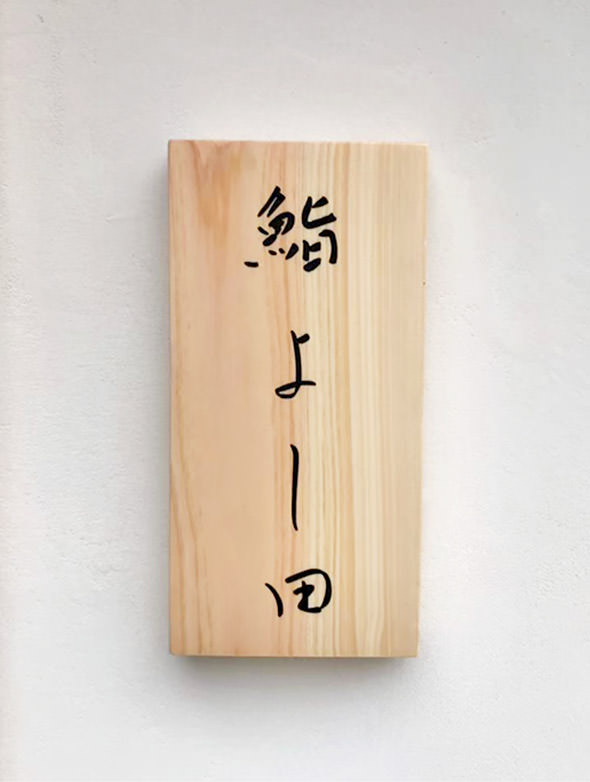 鮨よし田